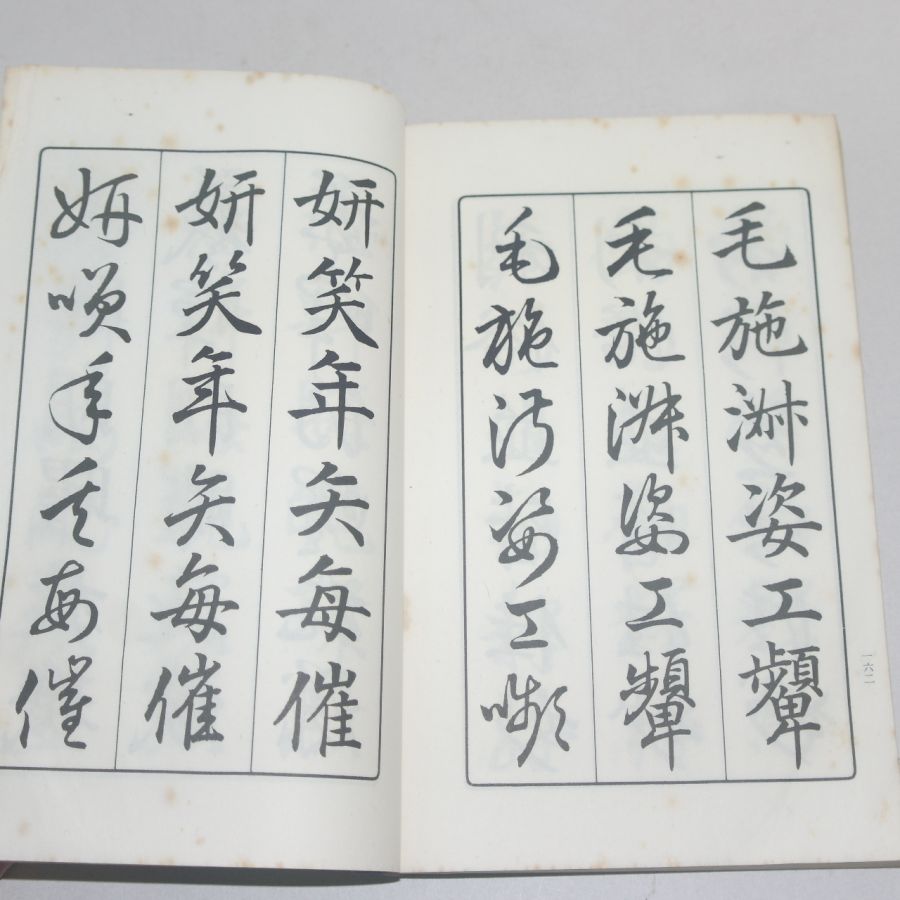 毛施淑姿工顰
毛施淑姿工顰
毛施淑姿工嚬
一六二
妍笑年矢每催
妍笑年矢每催
妍咲年矢每催